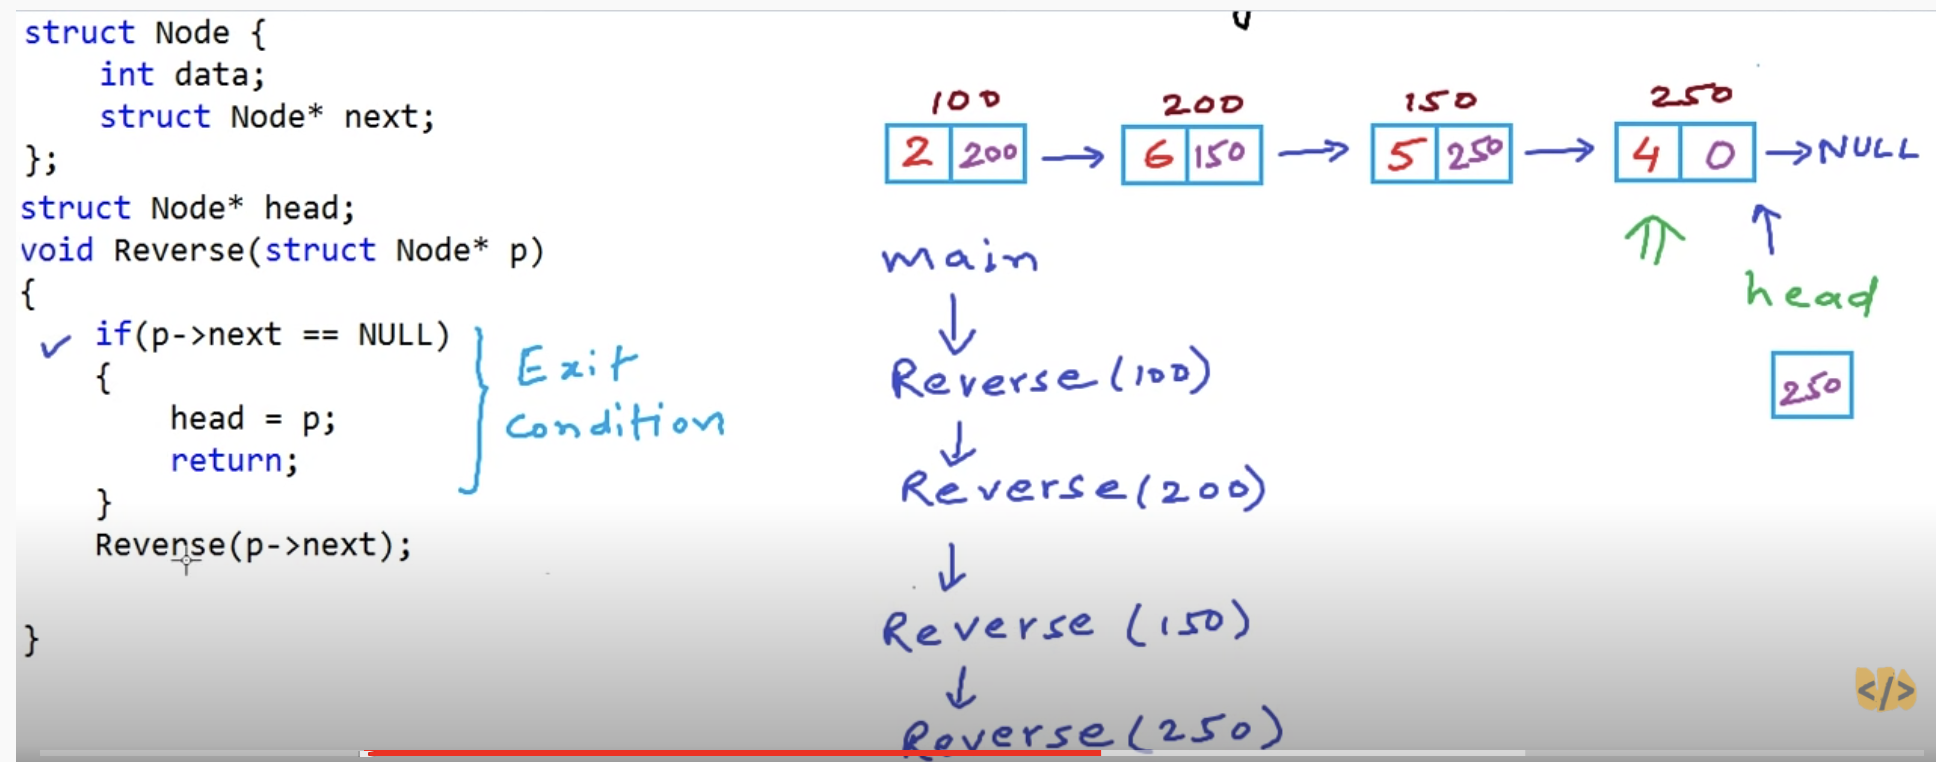 struct Node {
int data;
struct Node* next;
};
struct Node* head;
void Reverse(struct Node* p)
{
if(p->next == NULL)
{
head = p;
return;
}
Reverse(p->next);
}
Exit
condition
100 200 150 250
2 200 → 6 150 → 5 250 → 4 0 → NULL
head
250
main
↓
Reverse(100)
↓
Reverse(200)
↓
Reverse (150)
↓
Reverse(250)
</>